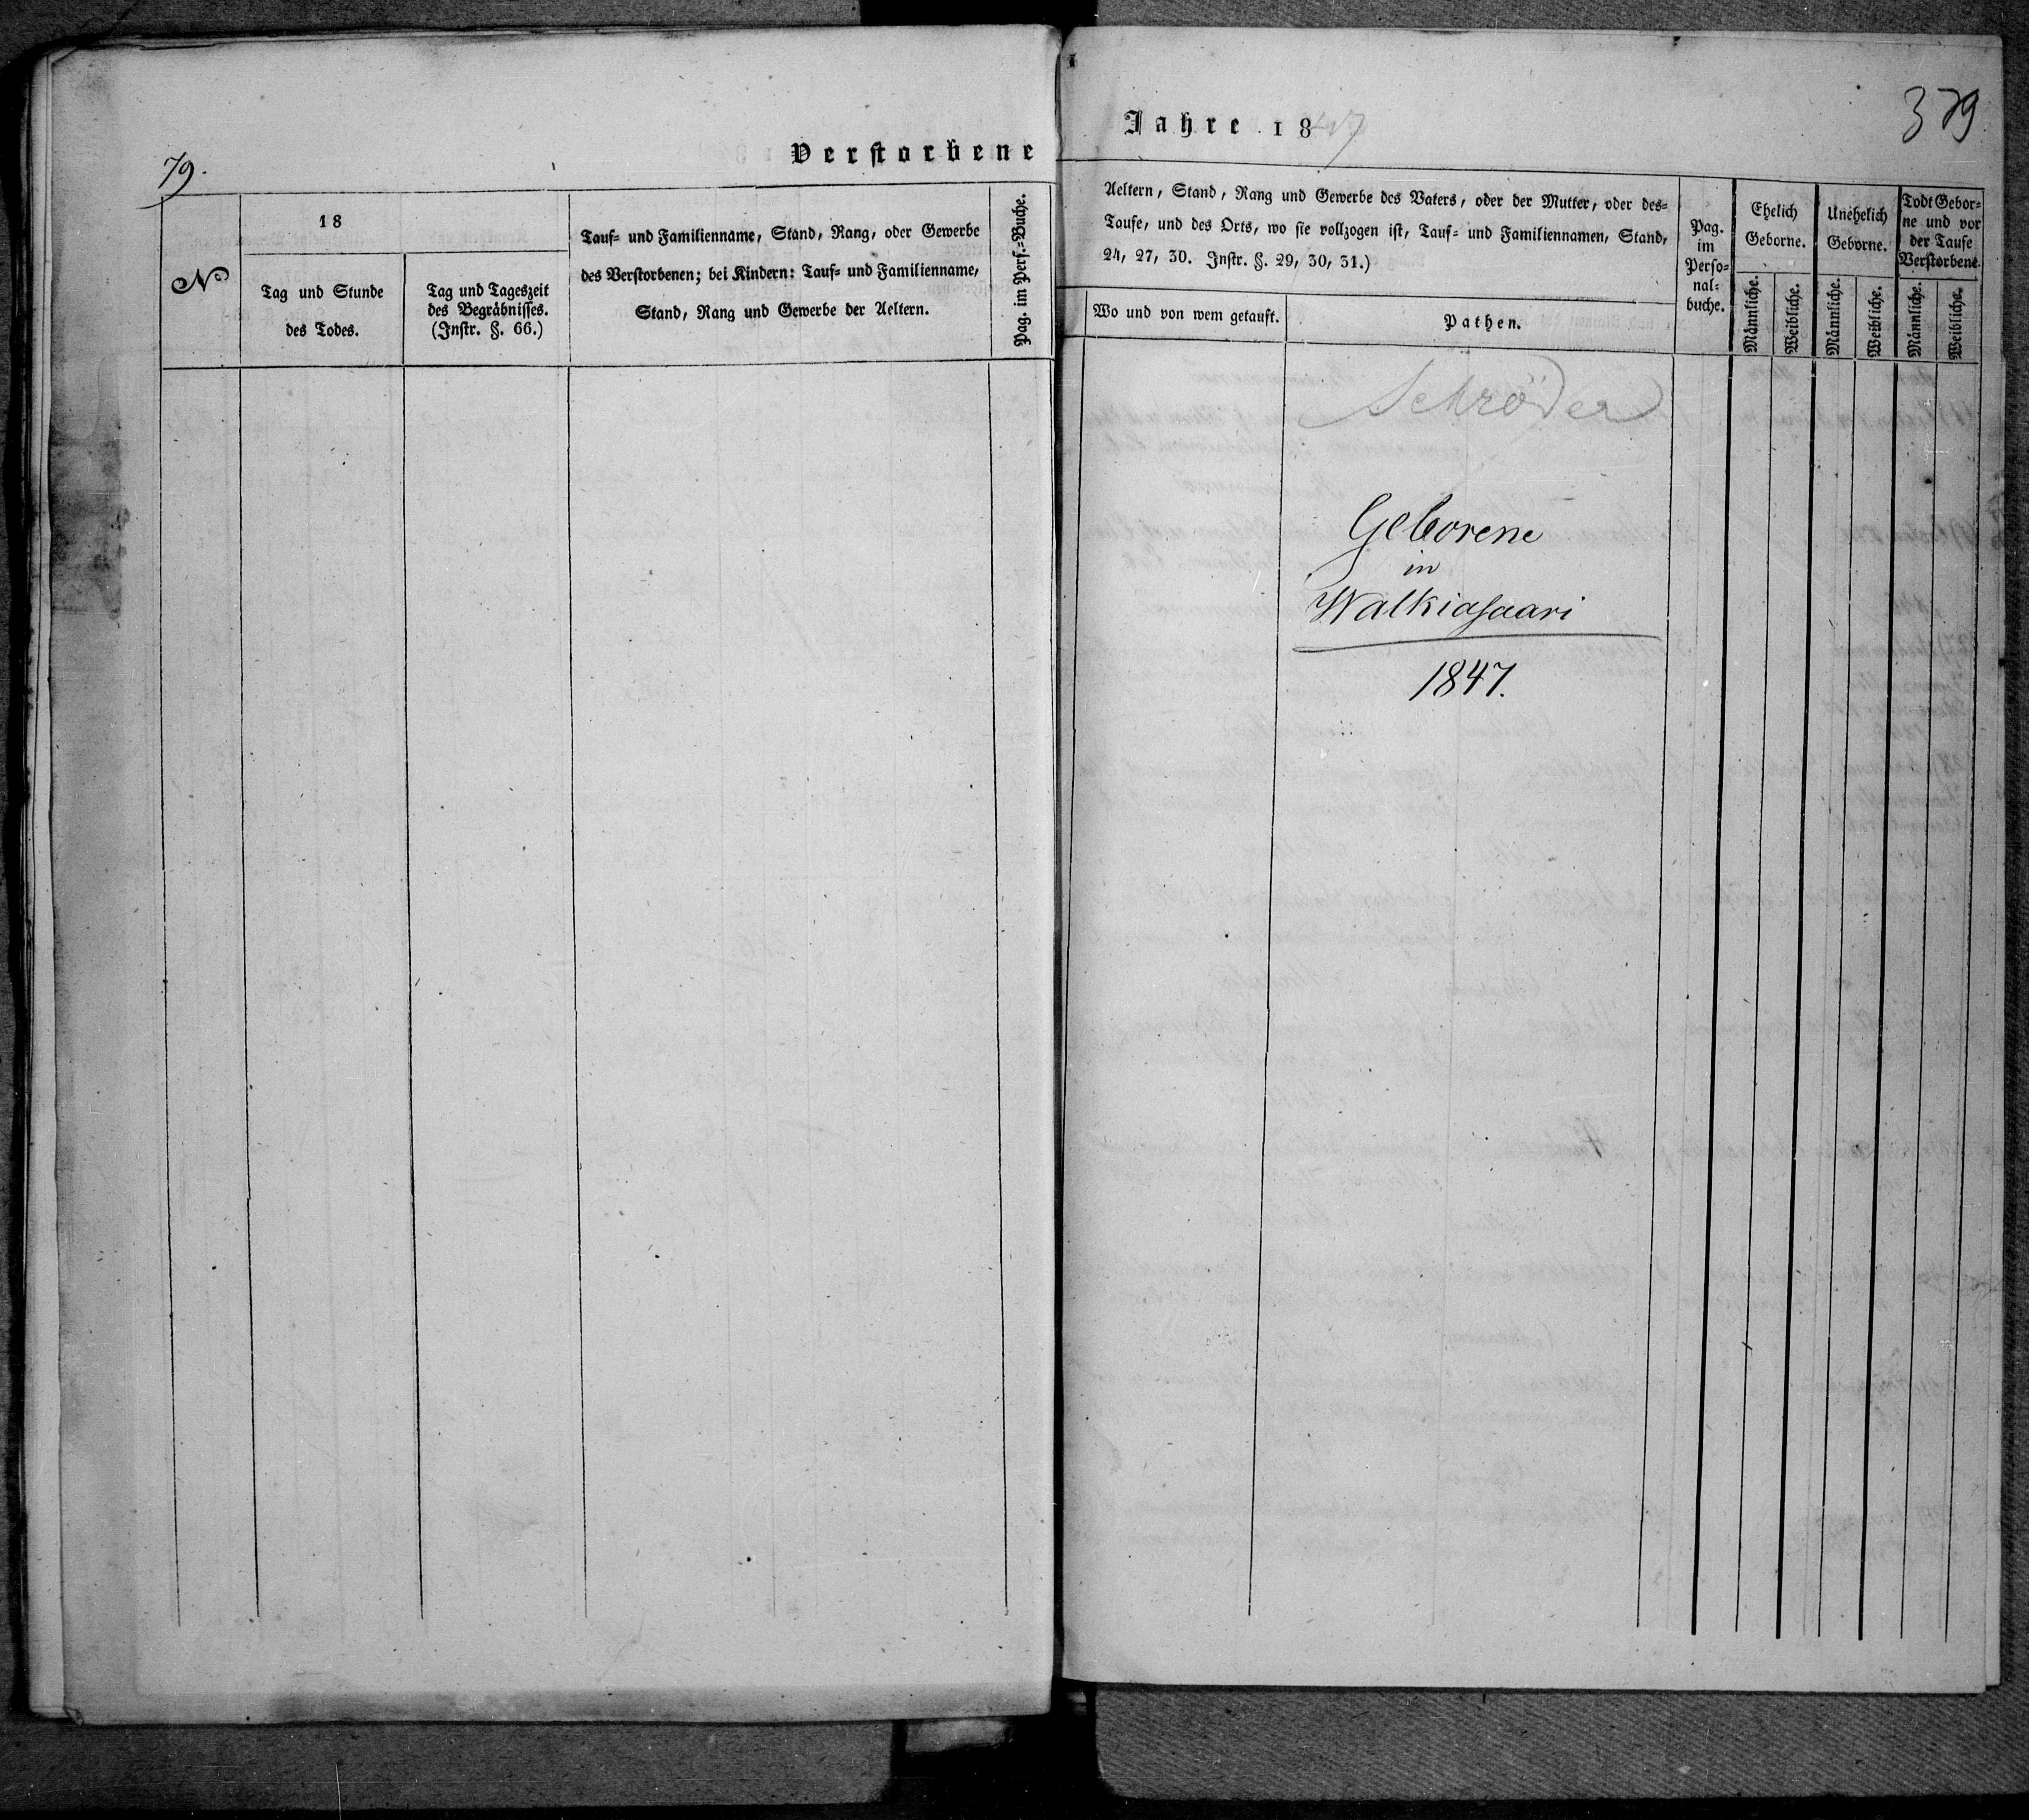 79.
Verstorbene
N⁰
18
Tag und Stunde
des Todes.
Tag und Tageszeit
des Begräbnisses.
(Instr. §. 66.)
Tauf- und Familienname, Stand, Rang, oder Gewerbe
des Verstorbenen; bei Kindern: Tauf- und Familienname,
Stand, Rang und Gewerbe der Aeltern.
Pag. im Pers-Buche.
Jahre 1847
379
Aeltern, Stand, Rang und Gewerbe des Vaters, oder der Mutter, oder des-
Taufe, und des Orts, wo sie vollzogen ist, Tauf- und Familiennamen, Stand,
24, 27, 30. Instr. §. 29, 30, 31.)
Wo und von wem getauft.
Pathen.
Pag.
im
Perso-
nal-
buche.
Ehelich
Geborne.
Männliche.
Weibliche.
Unehelich
Geborne.
Männliche.
Weibliche.
Todt Gebor-
ne und vor
der Taufe
Verstorbene.
Männliche.
Weibliche.
Schröder
Geborene
in
Walkiasaari
1847.